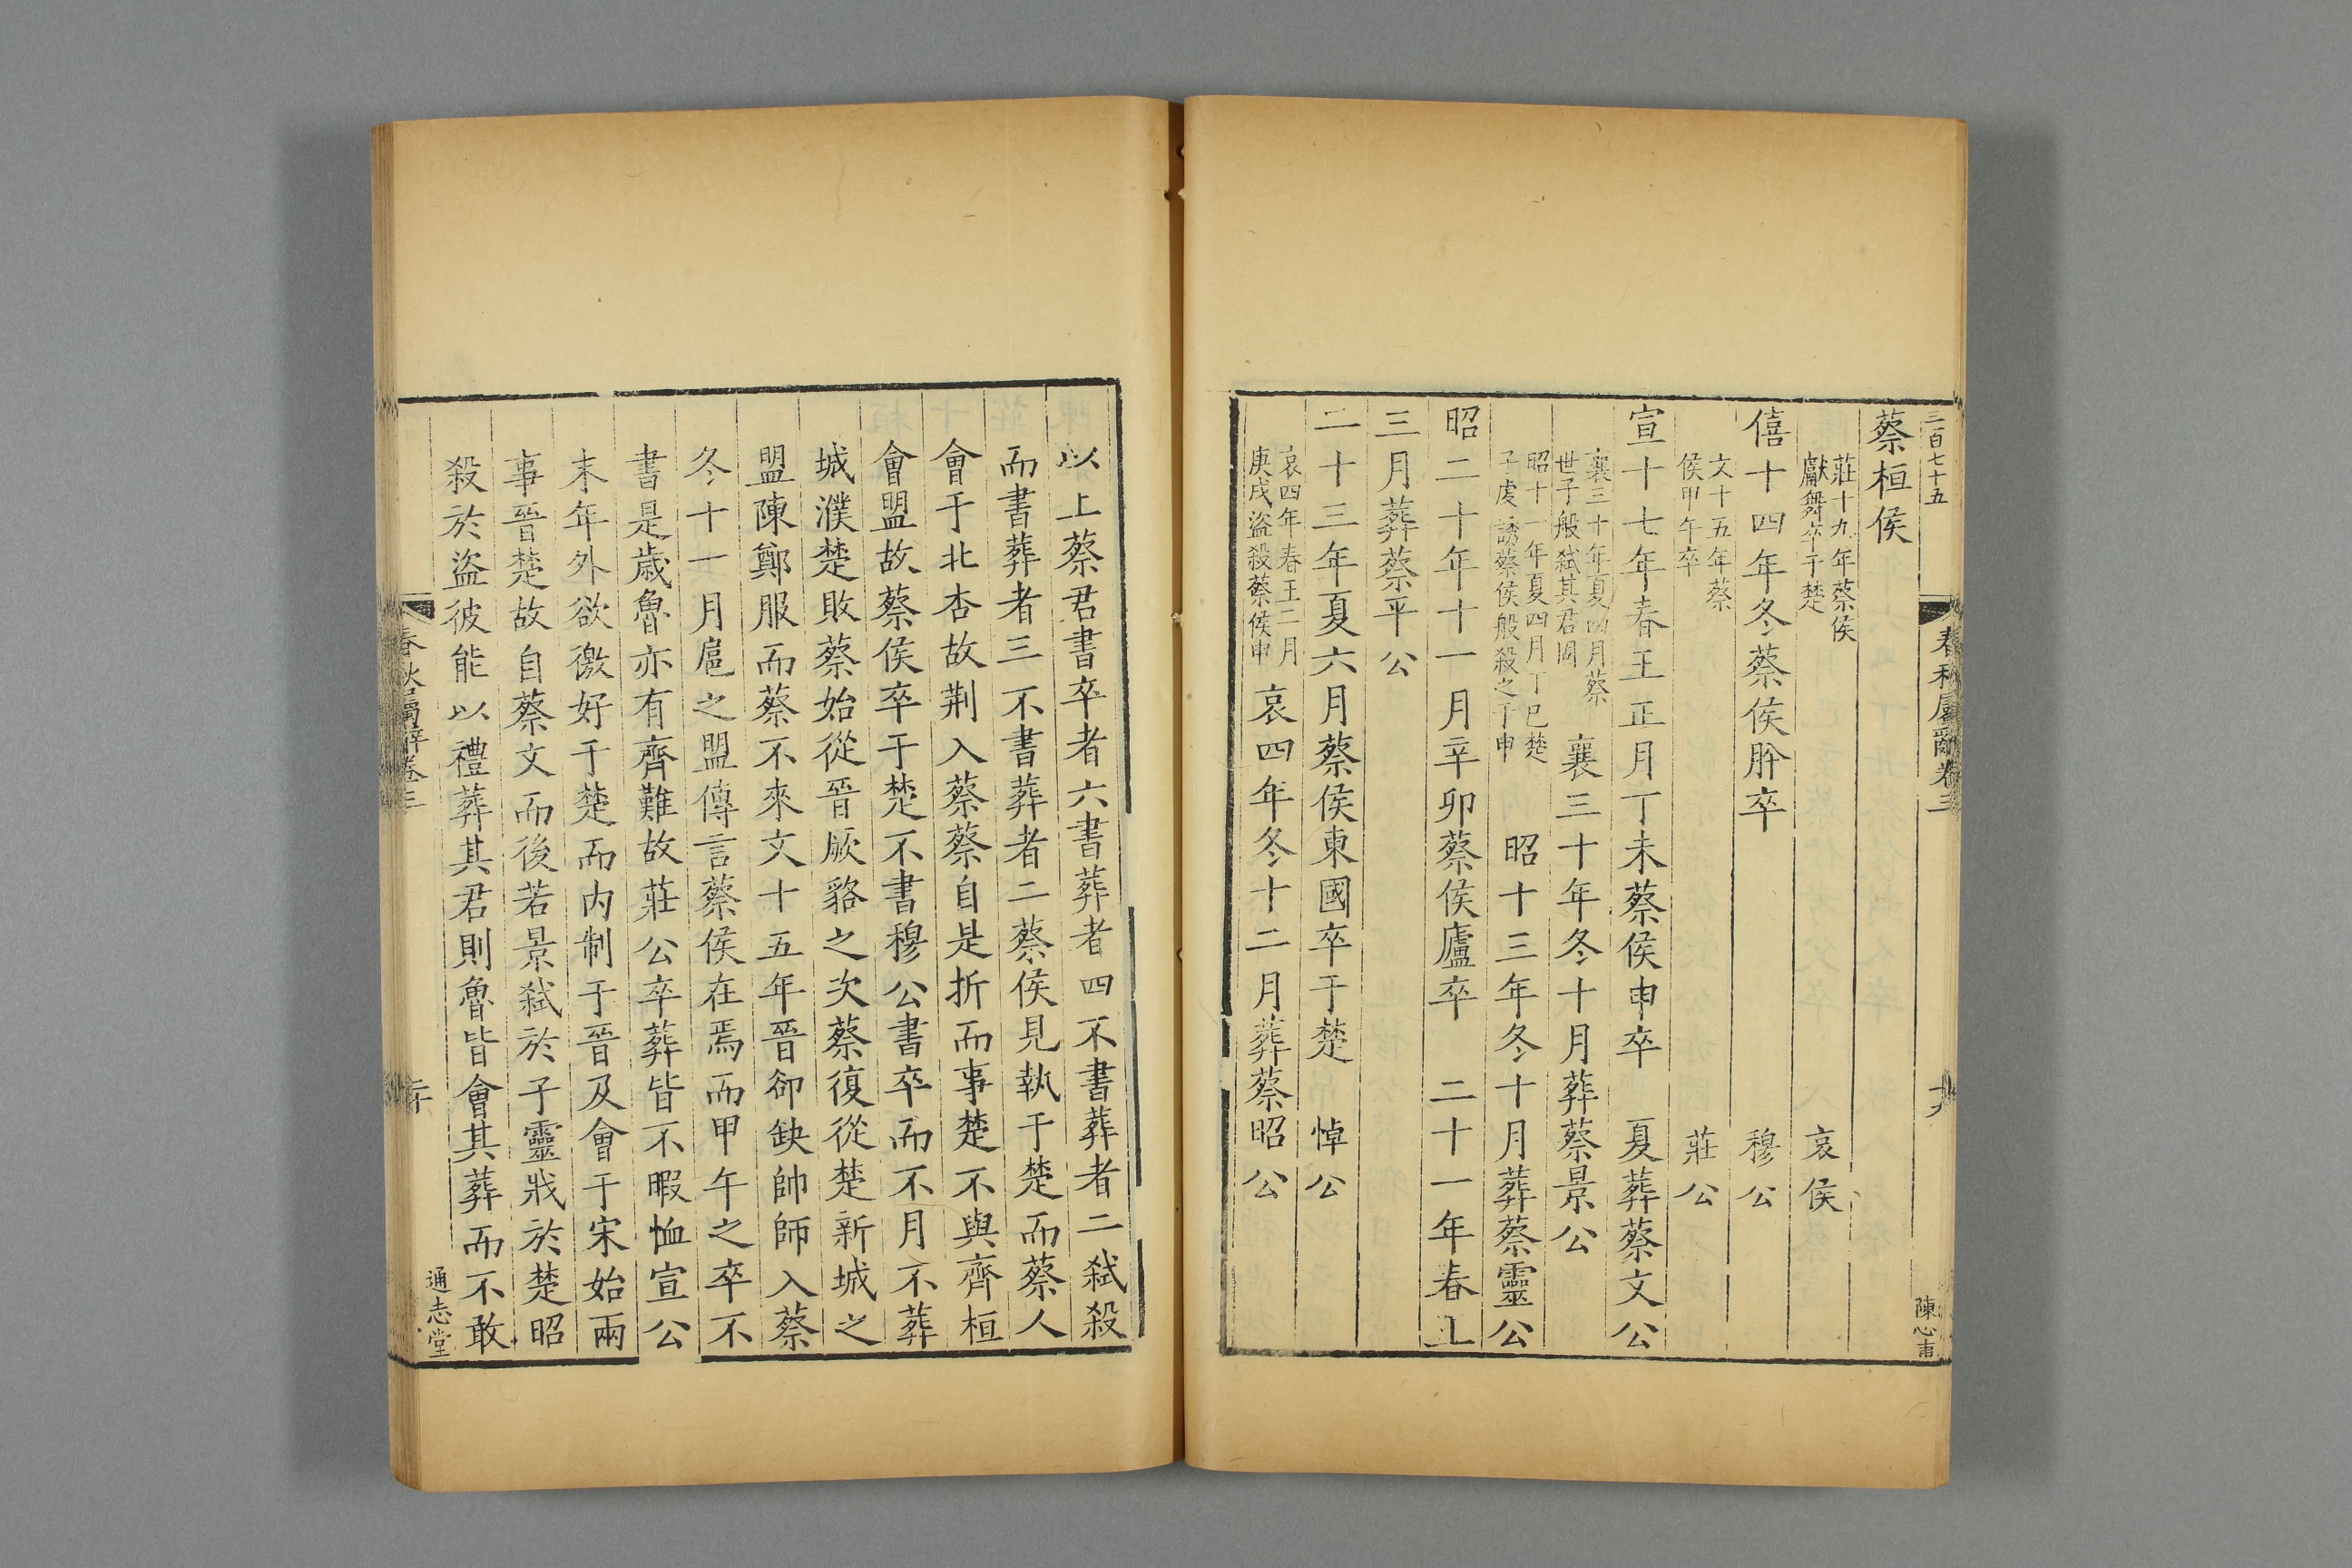 三百七十五
春秋屬辭卷三
陳心甫
蔡桓侯
莊十九年蔡侯
獻舞卒于楚
哀侯
僖十四年冬蔡侯肸卒
穆公
文十五年蔡
侯甲午卒
莊公
宣十七年春王正月丁未蔡侯申卒 夏葬蔡文公
襄三十年夏四月蔡
世子般弒其君固
襄三十年冬十月葬蔡景公
昭十一年夏四月丁巳楚
子虔誘蔡侯般殺之于申
昭十三年冬十月葬蔡靈公
昭二十年十一月辛卯蔡侯廬卒 二十一年春王
三月葬蔡平公
二十三年夏六月蔡侯東國卒于楚 悼公
哀四年春王二月
庚戌盜殺蔡侯申
哀四年冬十二月葬蔡昭公
以上蔡君書卒者六書葬者四不書葬者二弒殺
而書葬者三不書葬者二蔡侯見執于楚而蔡人
會于北杏故荆入蔡蔡自是折而事楚不與齊桓
會盟故蔡侯卒于楚不書穆公書卒而不月不葬
城濮楚敗蔡始從晉厥貉之次蔡復從楚新城之
盟陳鄭服而蔡不來文十五年晉郤缺帥師入蔡
冬十一月扈之盟傳言蔡侯在焉而甲午之卒不
書是歲魯亦有齊難故莊公卒葬皆不暇恤宣公
末年外欲徼好于楚而内制于晉及會于宋始兩
事晉楚故自蔡文而後若景弒於子靈戕於楚昭
殺於盜彼能以禮葬其君則魯皆會其葬而不敢
春秋屬辭卷三
二十
通志堂